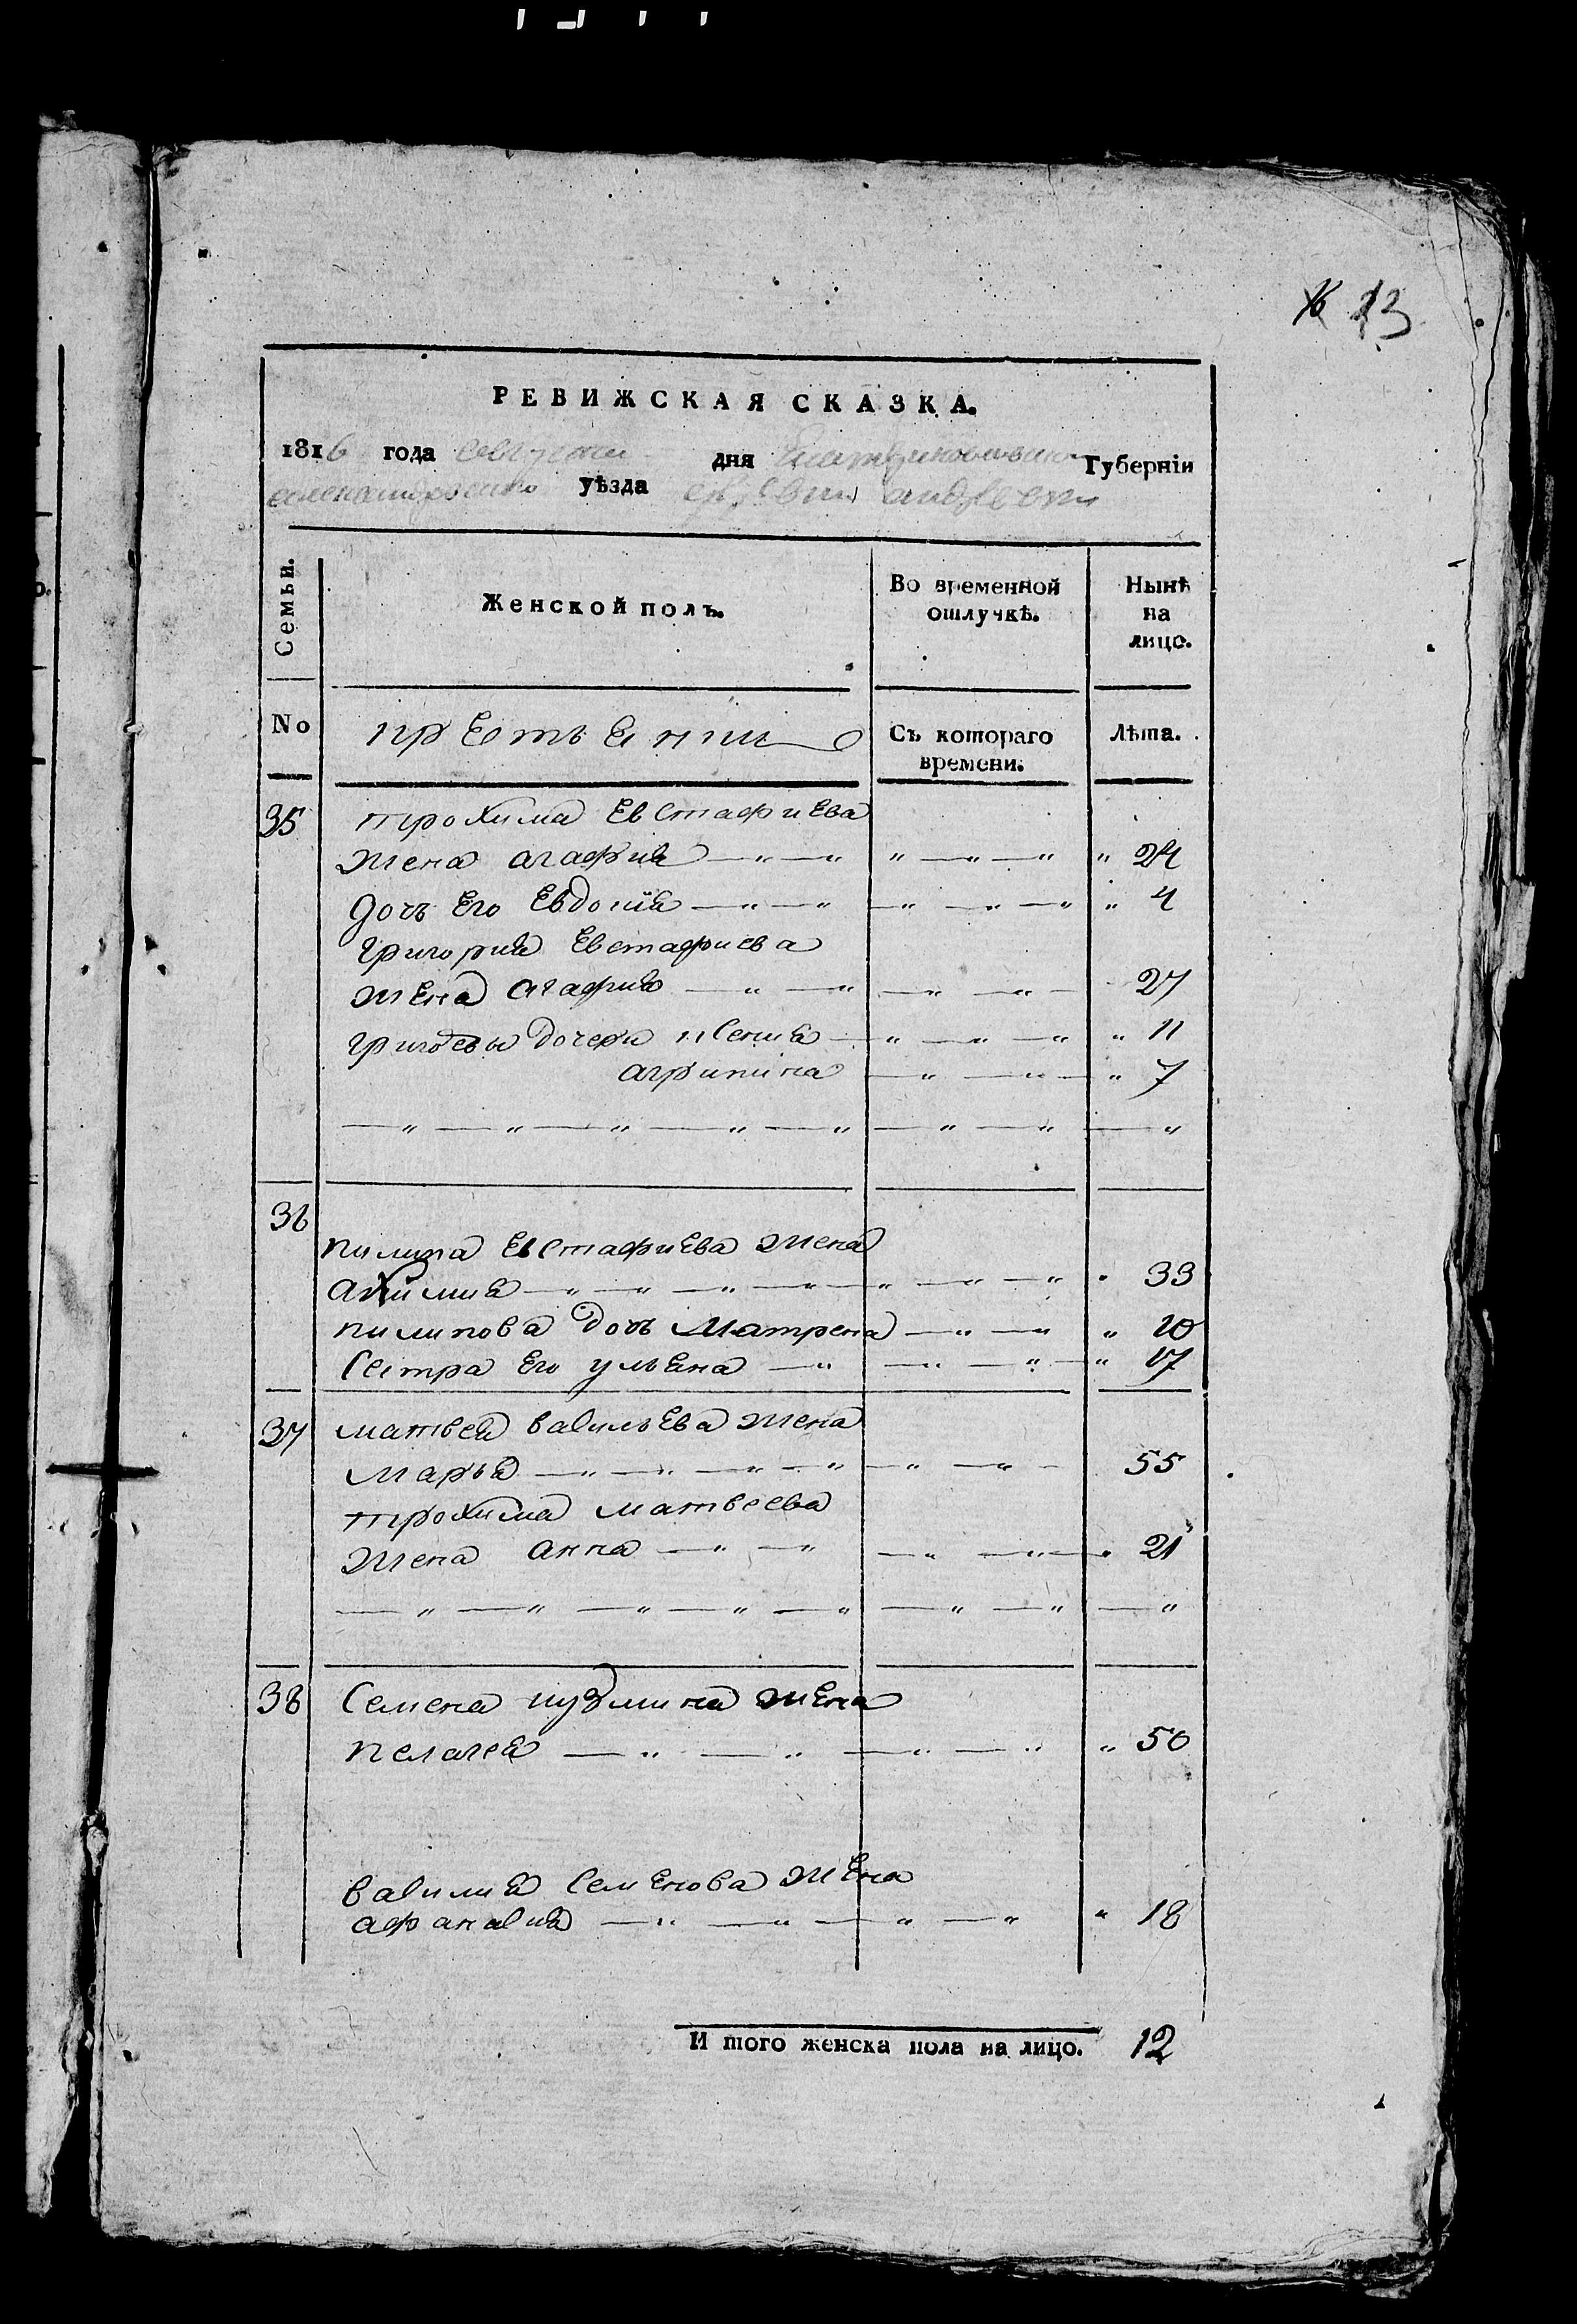 13
РЕВИЖСКАЯ СКАЗКА.
1816 года дня Екатеринославской Губерніи
уѣзда
Семьи.
Женской полъ.
Во временной отлучкѣ.
Ныnѣ на лицо.
No
крестьяnи
Съ котораго времени.
Лѣта.
35 трохима Евстафиева
жена агафия — „ — „ „ — „ — „ „ 24
дочь Его Евдокия — „ — „ — „ — „ — „ „ 4
григория Евстафиева
жена агафия — „ — „ — „ — „ — 27
григоревы дочери ксения — „ — „ — „ „ 11
агрипина — „ — „ — „ 7
— „ — „ — „ — „ — „ — „ — „ — „
36
пилипа Евстафиева жена
акимия — „ — „ — „ — „ — „ — „ — „ „ 33
пилипова дочь Матрена — „ — „ „ 10
Сестра Его ульяна — „ — „ — „ — „ 17
37 матвея васильева жена
Марья — „ — „ — „ — „ — „ — „ — 55
трохима матвеева
жена анна — „ — „ — „ — „ — „ 21
— „ — „ — „ — „ — „ — „ — „ — „
38 Семена кузмина жена
пелагея — „ — „ — „ — „ „ 50
василия Семенова жена
афанасия — „ — „ — „ — „ „ 18
И того женска пола на лицо. 12